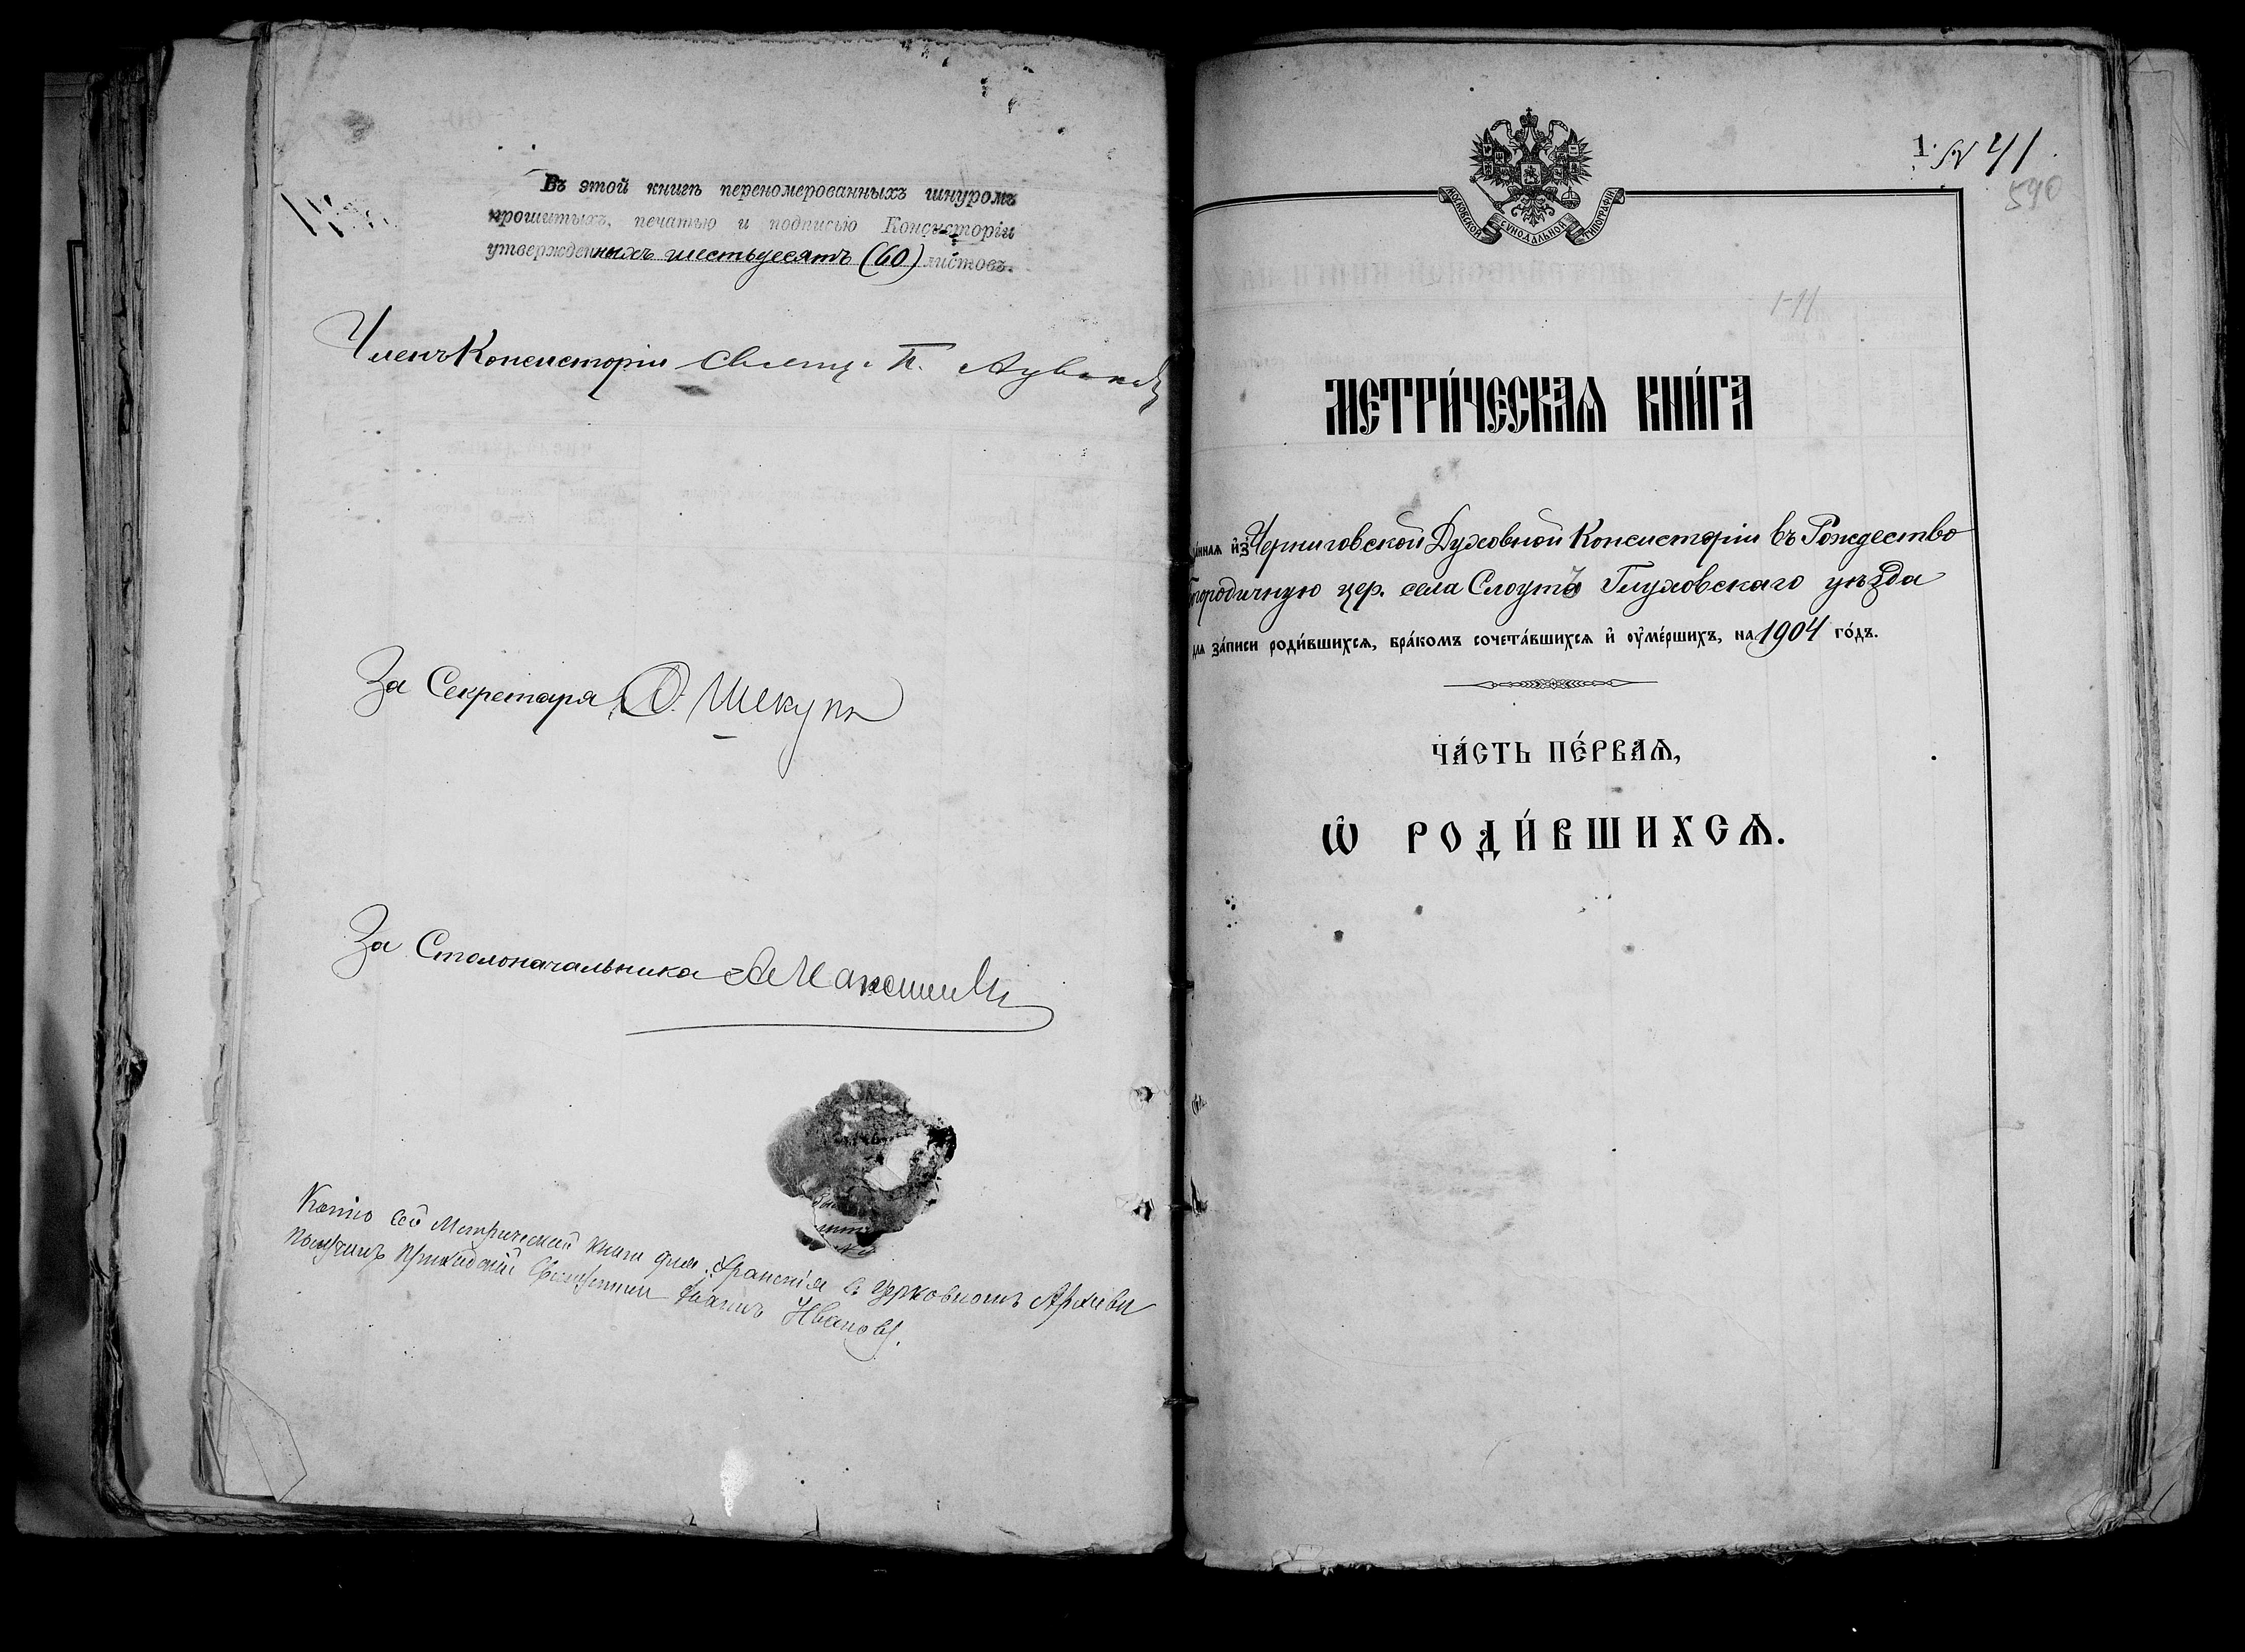 Въ этой книгѣ переномерованныхъ шнуромъ
прошитыхъ, печатью и подписью Консисторіи
утвержденныхъ шестьдесятъ (60) листовъ.
Членъ Консисторіи Свящ. П.
За Секретаря
За Столоначальника
Копію сей Метрической книги для храненія въ Церковномъ Архивѣ
получилъ приходскій Священникъ Іоаннъ Ивановъ.
1. N 41
590
МОСКОВСКОЙ СѴНОДАЛЬНОЙ ТИПОГРАФІИ
1-11
МЕТРИ́ЧЕСКАѦ КНИ́ГА
да́ннаѧ и҆з̾ Черниговской Духовной Консисторіи въ Рождество
Богородичную цер. села Слоутъ Глуховскаго уѣзда
длѧ за́писи роди́вшихсѧ, бра́комъ сочета́вшихсѧ и҆ ѹ҆ме́ршихъ, на 1904 го́дъ.
ЧА́СТЬ ПЕ́РВАѦ,
Ѽ РОДИ́ВШИХСѦ.